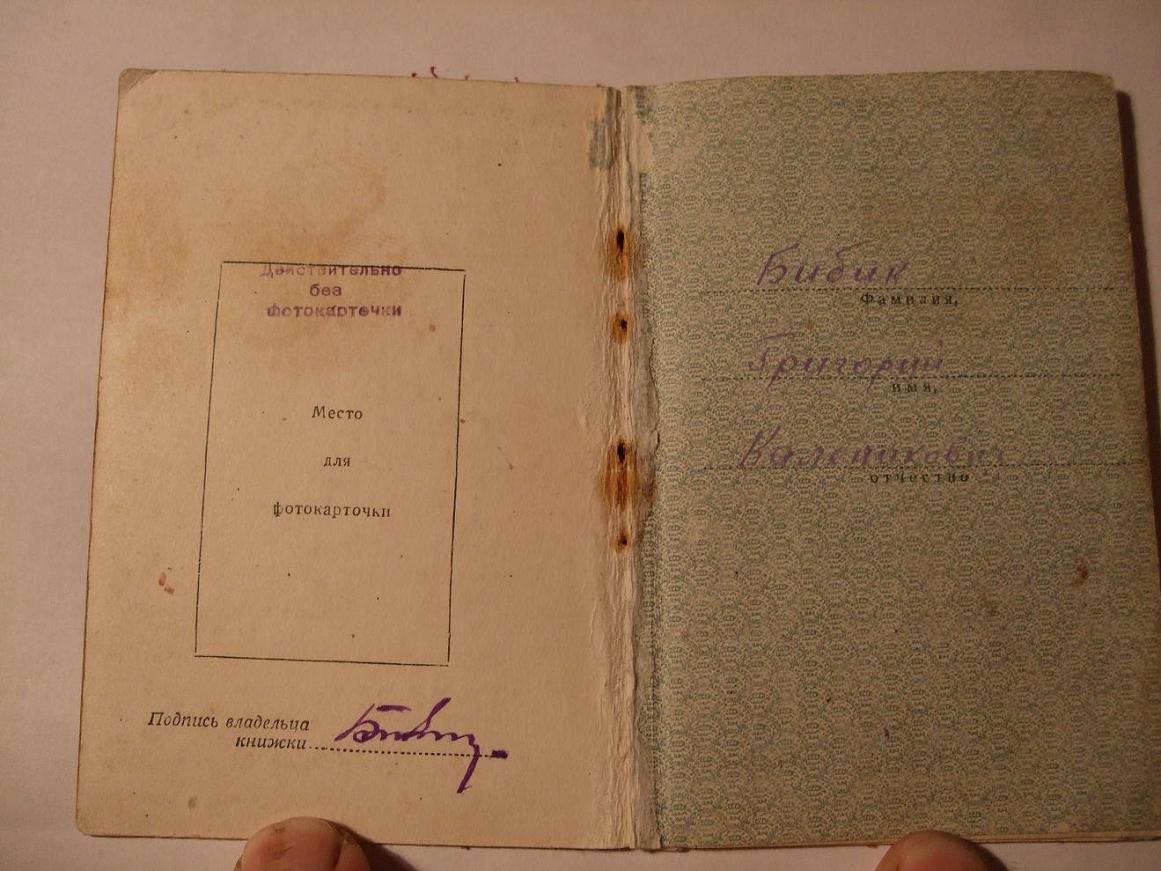 Действительно
без
фотокарточки
Место
для
фотокарточки
Подпись владельца
книжки
Бибик
Бибик
Фамилия,
Григорий
имя,
Каленикович
отчество